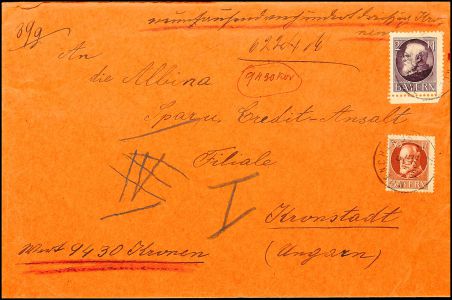 89g
neuntausendvierhundertdreißig Kro-
nen
An
9430 Kr
die Albina
Spar u. Credit-Ansalt
Filiale
Kronstadt
(Ungarn)
Wert 9430 Kronen
BAYERN
BAYERN